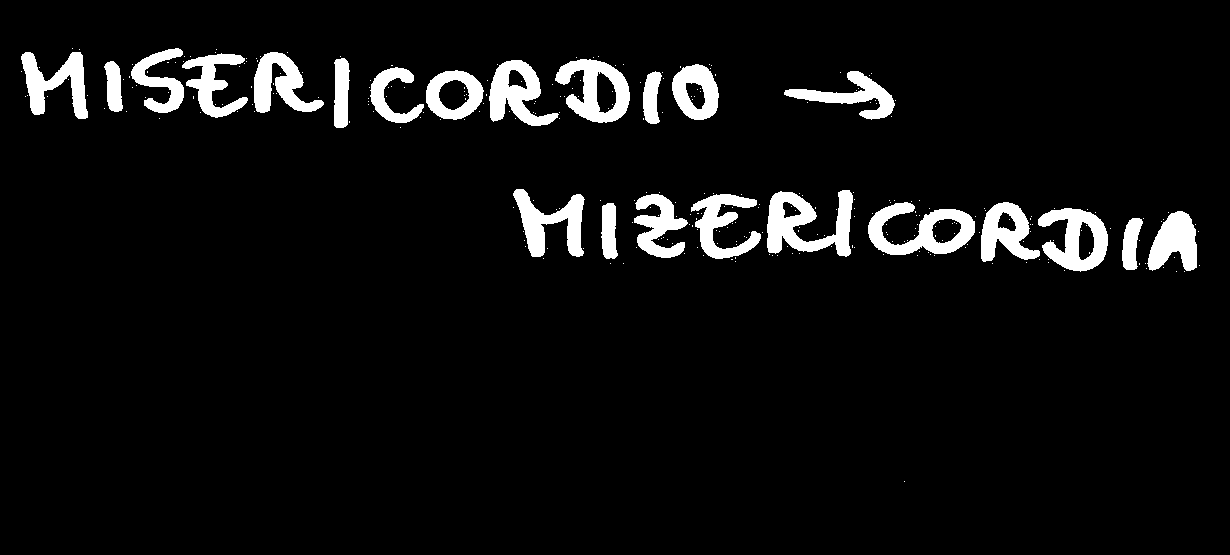 MISERICORDIO →
MIZERICORDIA